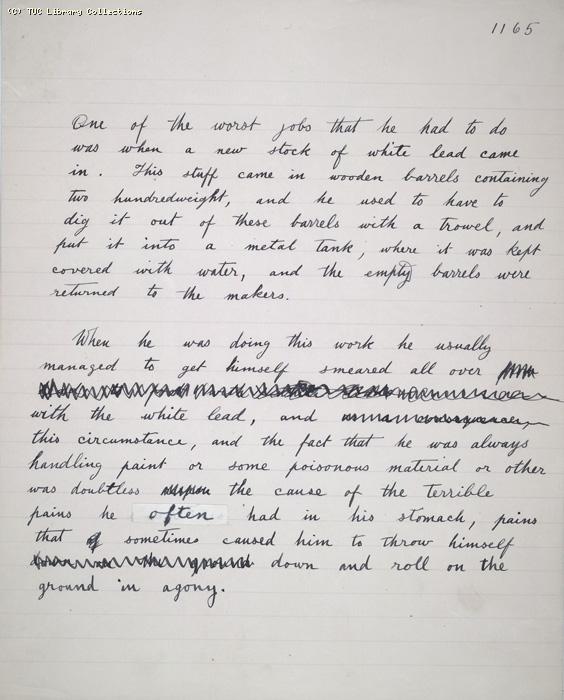 (C) TUC Library Collections
1165
One of the worst jobs that he had to do
was when a new stock of white lead came
in. This stuff came in wooden barrels containing
two hundredweight, and he used to have to
dig it out of these barrels with a trowel, and
put it into a metal tank, where it was kept
covered with water, and the empty barrels were
returned to the makers.
When he was doing this work he usually
managed to get himself smeared all over
with the white lead, and
this circumstance, and the fact that he was always
handling paint or some poisonous material or other
was doubtless the cause of the terrible
pains he often had in his stomach, pains
that sometimes caused him to throw himself
down and roll on the
ground in agony.